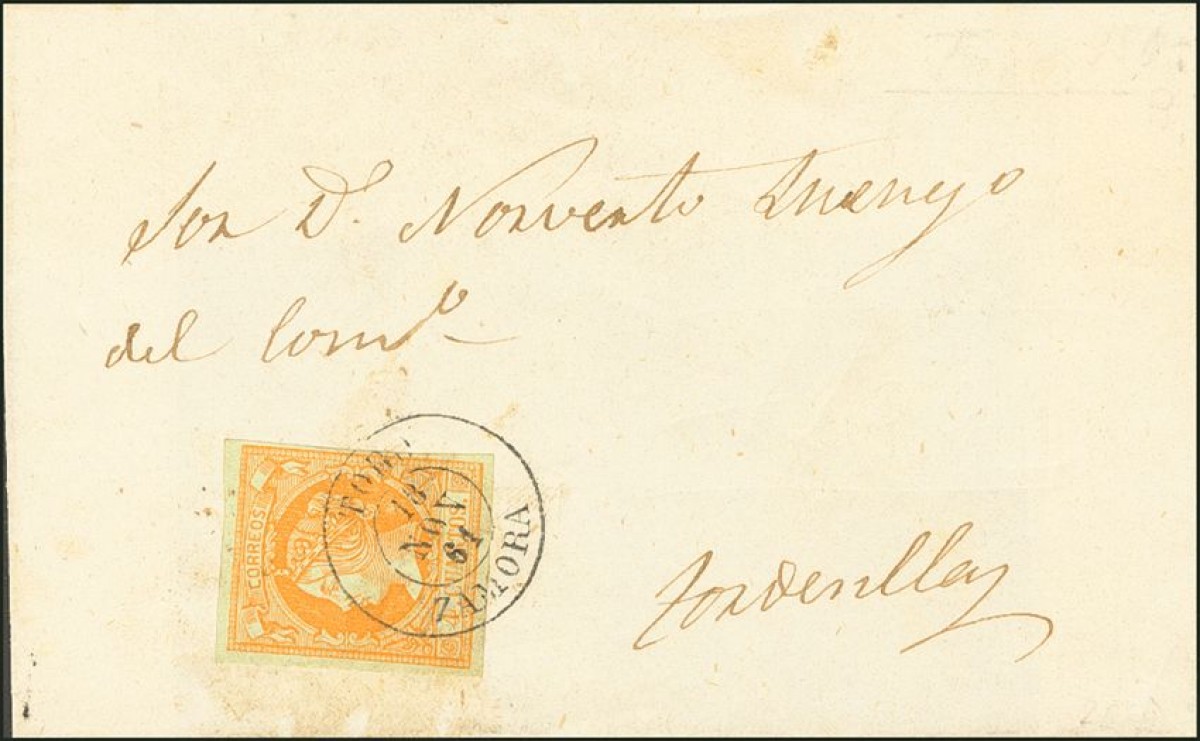 Sor D. Norverto Luengo
del Comº
TORO
18
NOV
61
ZAMORA
CORREOS
Tordesillas